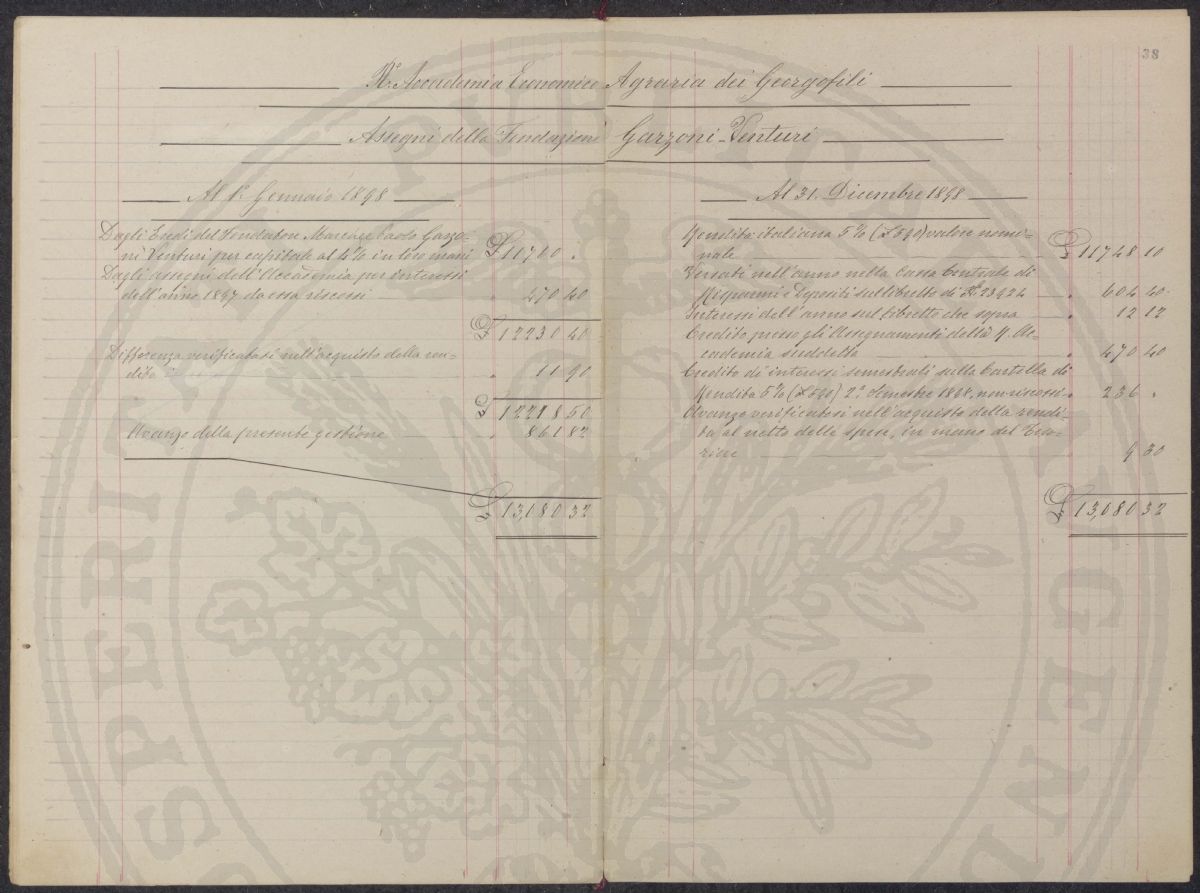 38
R.ª Accademia Economico Agraria dei Georgofili
Assegni della Fondazione Garzoni-Venturi
Al 1º Gennaio 1898
Dagli Eredi del Fondatore Marchese Paolo Garzo-
ni Venturi per capitale al 4% in loro mani £ 11760 .
Dagli assegni dell'Accademia per interessi
dell'anno 1897 da essa riscossi " 470 40
£ 12230 40
Differenza verificatasi nell'acquisto della ren-
dita " 11 90
£ 12218 50
Avanzo della presente gestione " 861 82
£ 13,080 32
Al 31. Dicembre 1898
Rendita italiana 5% (£ 590) valore nomi-
nale £ 11748 10
Versati nell'anno nella Cassa Centrale di
Risparmi e Depositi sul libretto di Nº 13424 " 604 40
Interessi dell'anno sul libretto che sopra " 12 12
Credito presso gli Assegnamenti della R. Ac-
cademia suddetta " 470 40
Credito di interessi semestrali sulla Cartella di
Rendita 5% (£ 590) 2º Semestre 1898, non riscossi " 236 .
Avanzo verificatosi nell'acquisto della rendi-
ta al netto delle spese, in mano del Teso-
riere " 9 30
£ 13,080 32